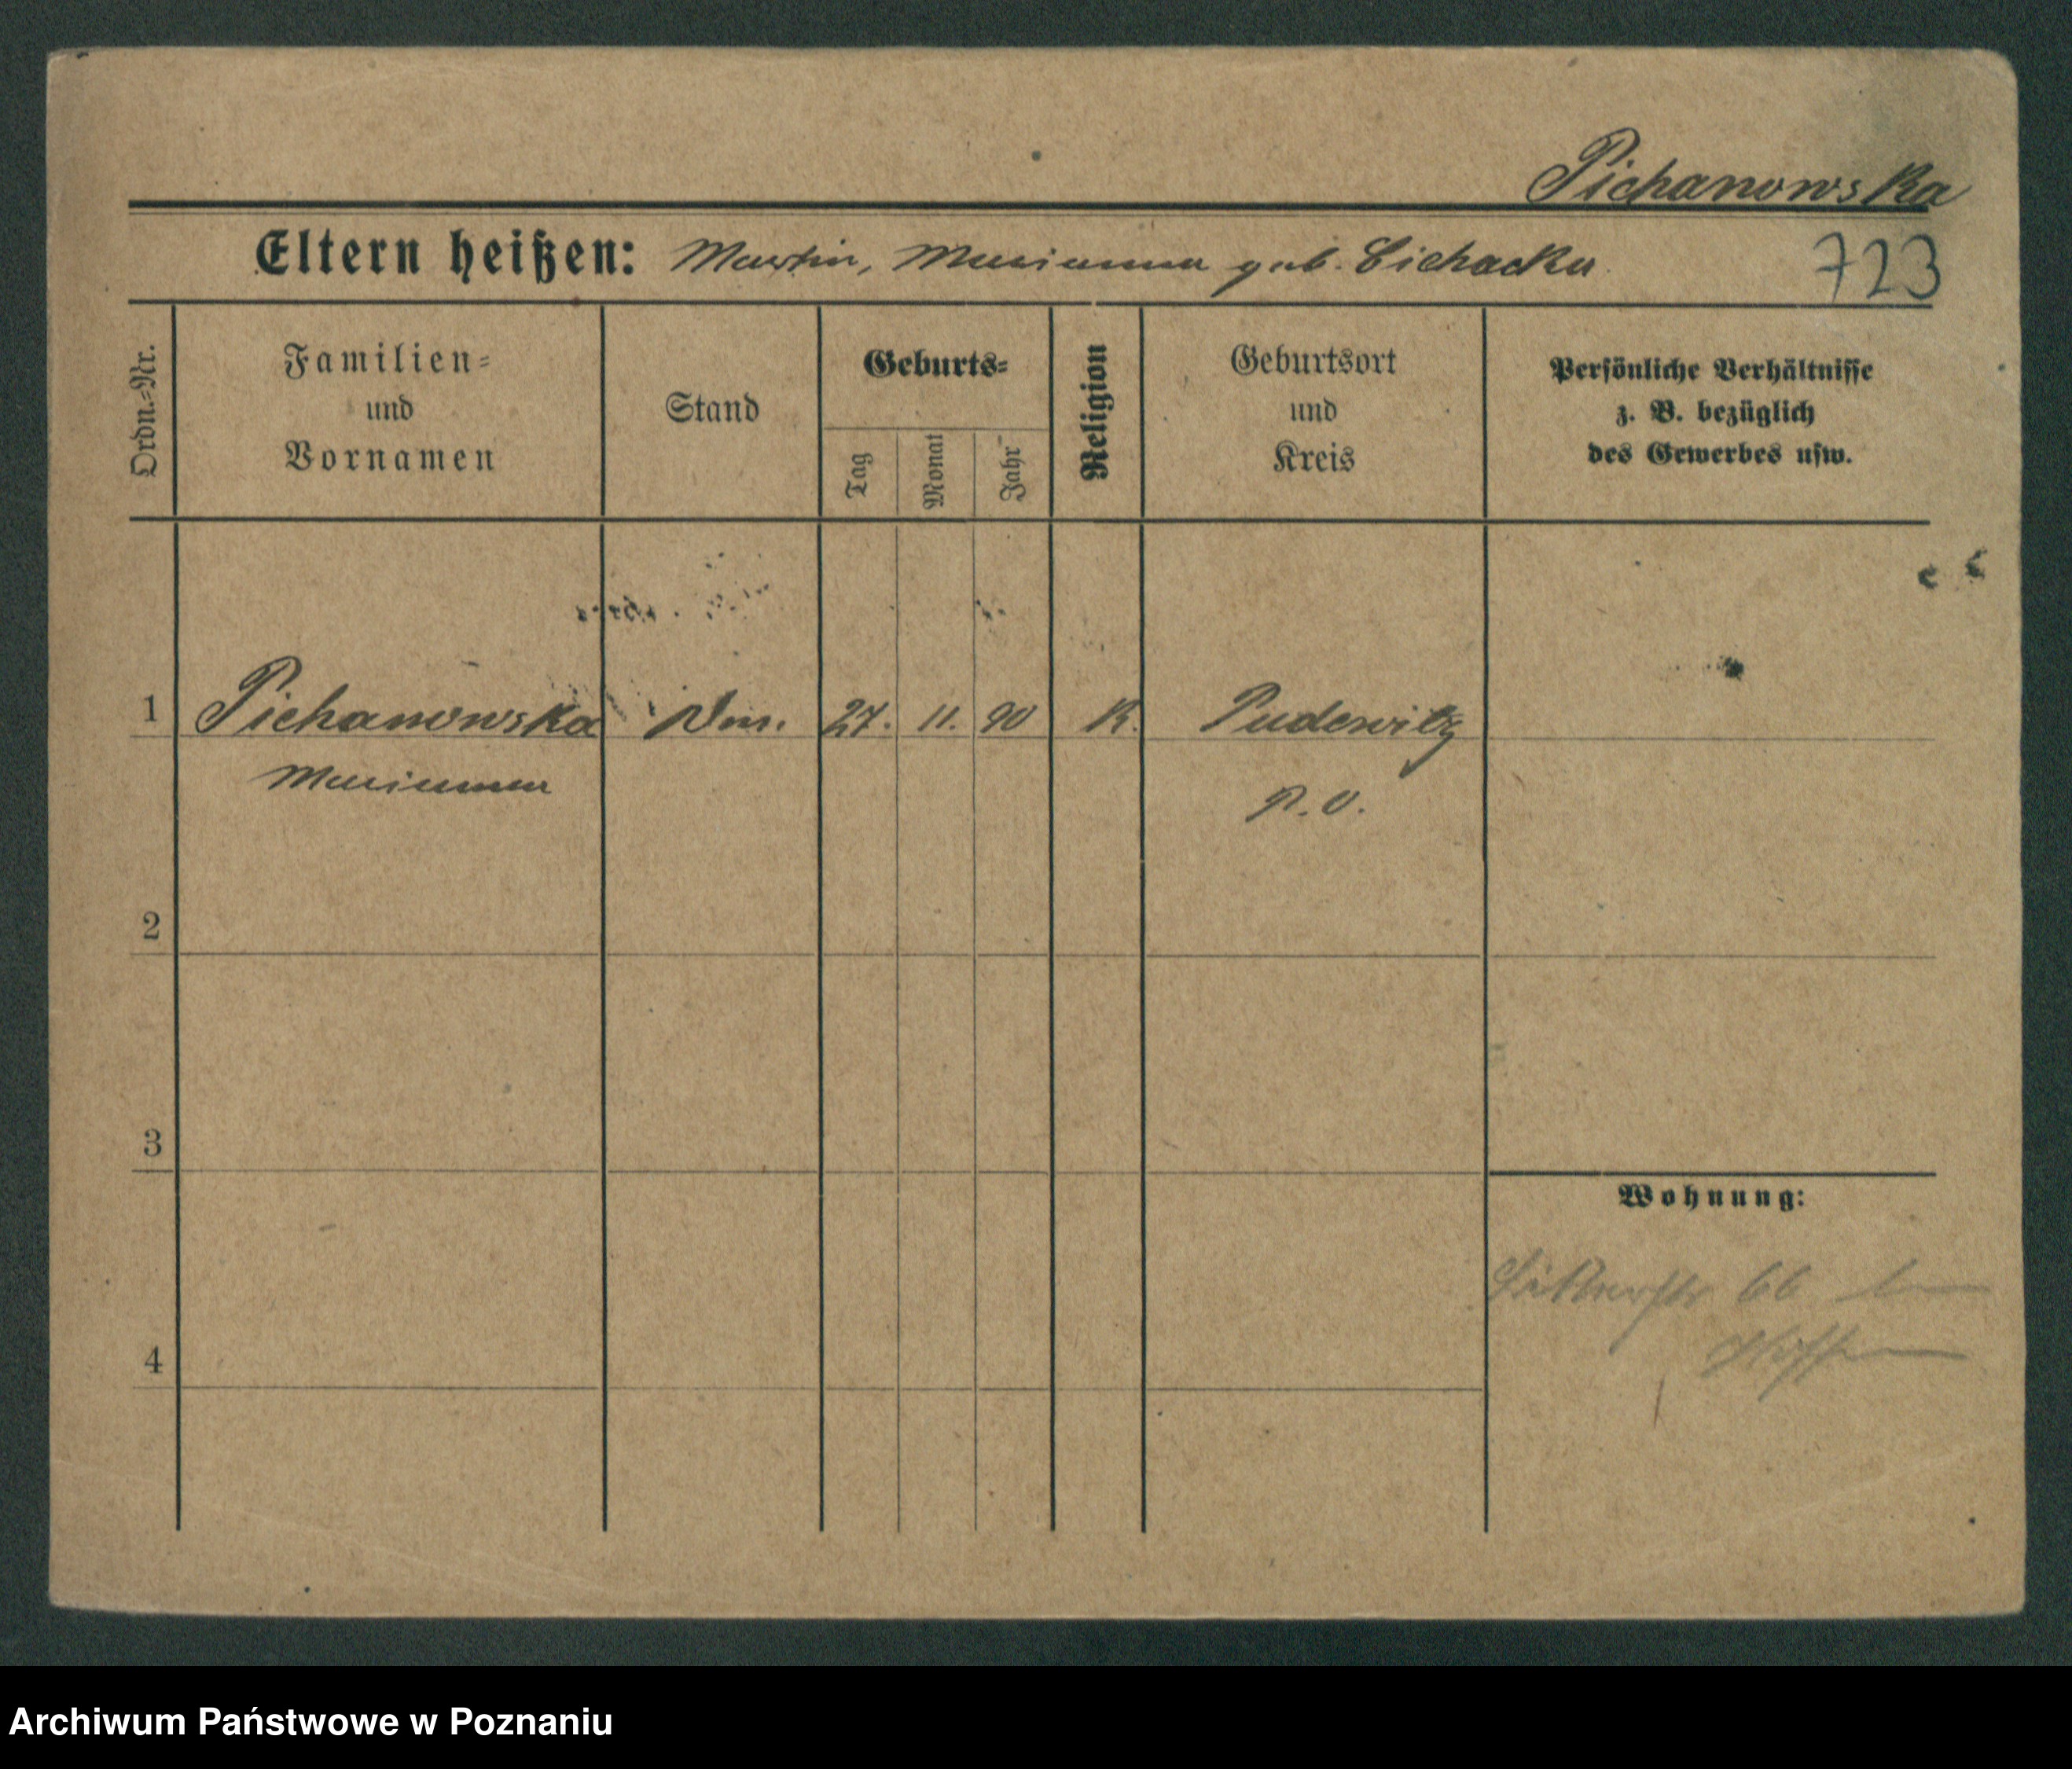 Pichanowska
Eltern heißen: Martin, Marianna geb. Cichacka.
723
Ordn.-Nr.
Familien-
und
Vornamen
Stand
Geburts-
Tag
Monat
Jahr
Religion
Geburtsort
und
Kreis
Persönliche Verhältnisse
z. B. bezüglich
des Gewerbes usw.
1
Pichanowska
27.
11.
90
K.
Pudewitz
Marianna
P. O.
2
3
4
Wohnung:
66
Archiwum Państwowe w Poznaniu